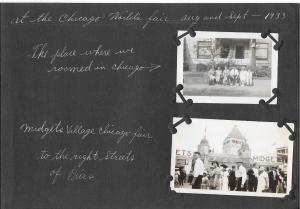 at the Chicago Worlds fair aug and sept - 1933
The place where we
roomed in chicago →
Midgets Village chicago fair
to the right Streets
of Paris
ETS
MIDGE